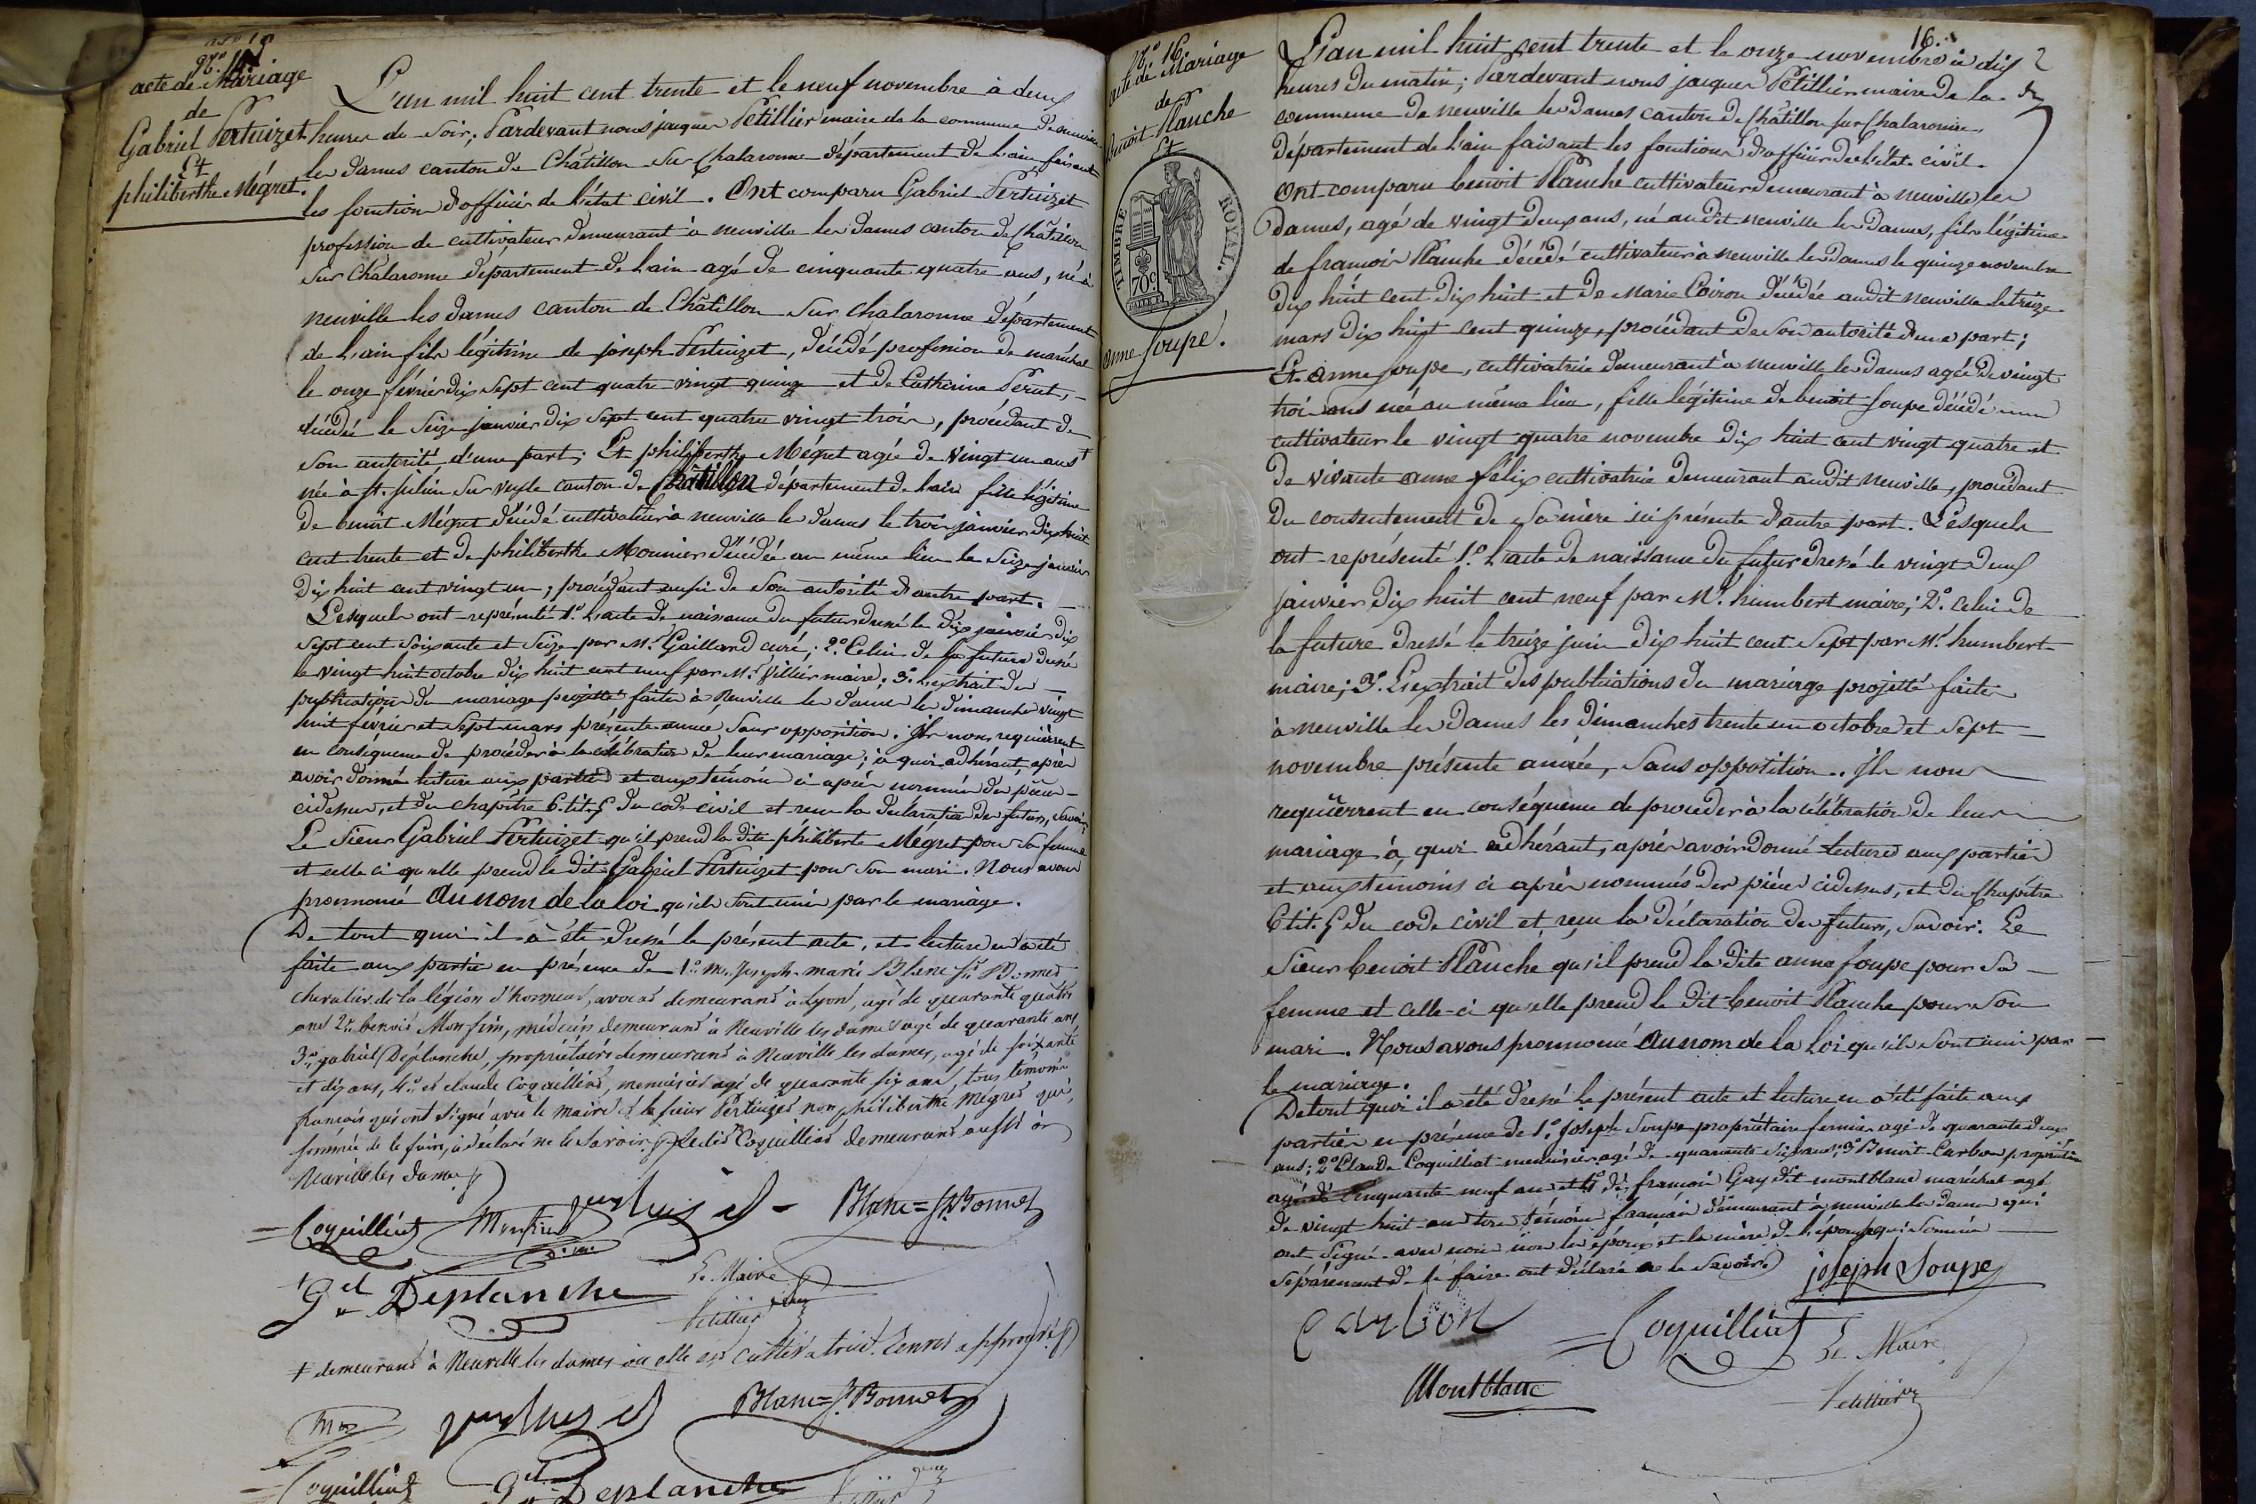 N.° 15
acte de Mariage
de
Gabriel Pertuizet
Et
philiberthe Mégret.
L'an mil huit cent trente et le neuf novembre à deux
heures du soir; Pardevant nous jacques Pétillier maire de la commune de neuville
les dames canton de Châtillon sur Chalaronne département de l'ain faisant
les fonctions d'officier de l'état civil. Ont comparu Gabriel Pertuizet
profession de cultivateur demeurant à neuville les dames canton de Châtillon
sur Chalaronne département de l'ain agé de cinquante quatre ans, né à
neuville les dames canton de Châtillon sur Chalaronne département
de l'ain fils légitime de joseph Pertuizet, décédé profession de maréchal
le onze février dix sept cent quatre vingt quinze et de Catherine Perut,
décédée le seize janvier dix sept cent quatre vingt trois, procédant de
son autorité d'une part; Et philiberthe Mégret agée de vingt un ans +
née à St. julien sur veyle canton de Châtillon département de l'ain fille légitime
de benoit Mégret décédé cultivateur à neuville les dames le trois janvier dix huit
cent trente et de philiberthe Mounier décédée au même lieu le seize janvier
dix huit cent vingt un, procédant aussi de son autorité d'autre part.
Lesquels ont représenté 1.° l'acte de naissance du futur dressé le dix janvier dix
sept cent soixante et seize par Mr. Gaillard curé; 2.° Celui de la future dressé
le vingt huit octobre dix huit cent neuf par Mr. Villier maire; 3.° L'extrait des
publications du mariage projetté faites à Neuville les dames les dimanches vingt
huit février et sept mars présente année sans opposition; Ils nous requièrent
en conséquence de procéder à la célébration de leur mariage; à quoi adhérant, après
avoir donné lecture aux parties et aux témoins ci après nommés des pièces
cidessus, et du chapitre 6. tit. 5 du code civil et reçu la déclaration des futurs, savoir:
Le sieur Gabriel Pertuizet qu'il prend la dite philiberte Mégret pour sa femme
et celle ci qu'elle prend le dit Gabriel Pertuizet pour son mari. Nous avons
prononcé Au nom de la loi qu'ils sont unis par le mariage.
De tout quoi il a été dressé le présent acte, et lecture en a été
faite aux parties en présence de 1.° Mr. Joseph-marie Blanc St. Bonnet
chevalier de la légion d'honneur, avocat demeurant à Lyon, agé de quarante quatre
ans 2.° benoit Monfin, médecin demeurant à Neuville les dames agé de quarante ans
3.° gabriel Deplanche, propriétaire demeurant à Neuville les dames, agé de soixante
et dix ans, 4.° et claude Coquilliat, menuisier agé de quarante six ans, tous témoins
francois qui ont signé avec le maire et le sieur Pertuizet non philiberthe Mégret qui,
sommée de le faire, a déclaré ne le savoir. Ledit Coquilliat demeurant aussi à
Neuville les dames
Coquilliat Monfin pertuis et Blanc=St. Bonnet
D. m.
Gel Deplanche Le Maire
Pétillier
+ demeurant à Neuville les dames où elle est cultivatrice. Renvoi approuvé
pertuis et Blanc=St. Bonnet
Coquilliat Gel Deplanche
16.
N.° 16.
acte de Mariage
de
benoit Planche
Et
TIMBRE ROYAL.
70c
anne Soupe.
L'an mil huit cent trente et le onze novembre à dix
heures du matin; Pardevant nous jacques Pétillier maire de la
commune de neuville les dames canton de Châtillon sur Chalaronne
département de l'ain faisant les fonctions d'officier de l'état civil.
Ont comparu benoit Planche cultivateur demeurant à neuville les
dames, agé de vingt deux ans, né audit neuville les dames, fils légitime
de francois Planche décédé cultivateur à neuville les dames le quinze novembre
dix huit cent dix huit et de Marie Coiron décédée audit neuville le treize
mars dix huit cent quinze, procédant de son autorité d'une part;
Et anne Soupe, cultivatrice demeurant à neuville les dames agée de vingt
trois ans née au même lieu, fille légitime de benoit Soupe décédé
cultivateur le vingt quatre novembre dix huit cent vingt quatre et
de vivante anne félix cultivatrice demeurant audit neuville, procédant
du consentement de sa mère ici présente d'autre part. Lesquels
ont représenté 1.° l'acte de naissance du futur dressé le vingt deux
janvier dix huit cent neuf par Mr. humbert maire; 2.° Celui de
la future dressé le treize juin dix huit cent sept par Mr. humbert
maire; 3.° L'extrait des publications du mariage projetté faites
à neuville les dames les dimanches trente un octobre et sept
novembre présente année, sans opposition. Ils nous
requièrrent en conséquence de procéder à la célébration de leur
mariage à quoi adhérant, après avoir donné lecture aux parties
et aux témoins ci après nommés des pièces cidessus, et du Chapitre
6 tit. 5 du code civil et reçu la déclaration des futurs, savoir: Le
sieur benoit Planche qu'il prend la dite anne Soupe pour sa
femme et celle-ci qu'elle prend le dit benoit Planche pour son
mari. Nous avons prononcé Au nom de la loi qu'ils sont unis par
le mariage.
De tout quoi il a été dressé le présent acte et lecture en a été faite aux
parties en présence de 1.° joseph Soupe propriétaire fermier agé de quarante deux
ans; 2.° Claude Coquilliat menuisier agé de quarante six ans; 3.° Benoit Carbon propriétaire
agé de cinquante neuf ans et 4.° de francois Gay dit montblanc maréchal agé
de vingt huit ans tous témoins francais demeurant à neuville les dames qui
ont signé avec nous non les époux et la mère de l'épouse qui sommés
séparément de le faire ont déclaré ne le savoir.
joseph Soupe
Carbon Coquilliat Le Maire
Montblanc Pétillier